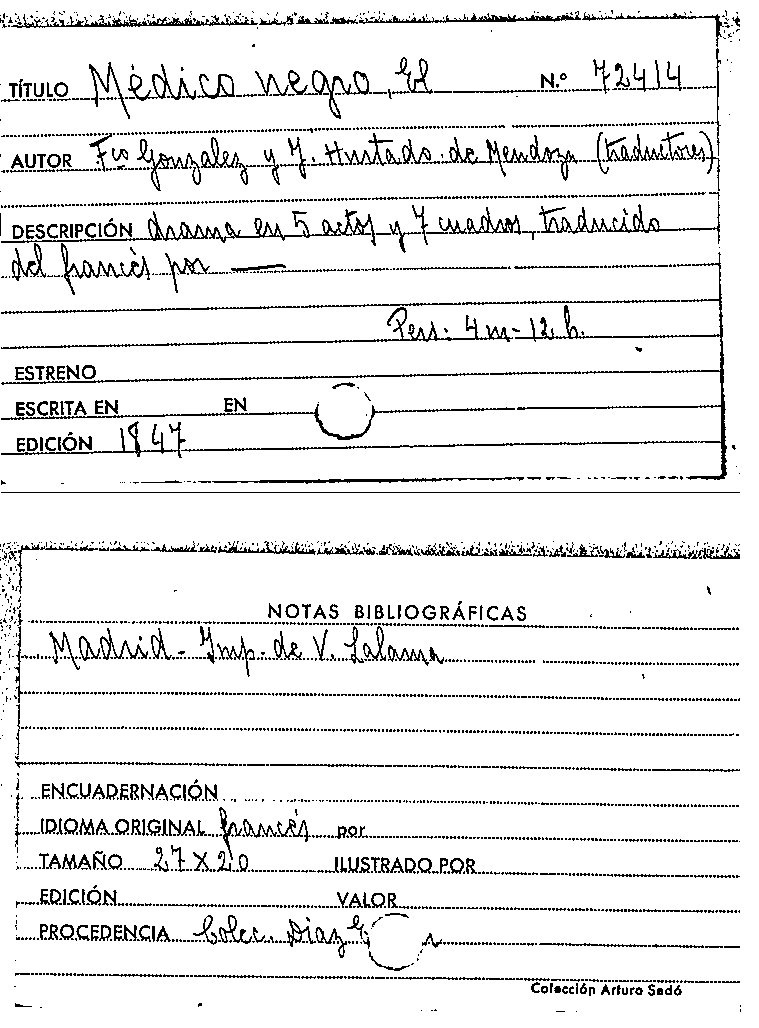 TÍTULO Médico negro, El N.º 72414
AUTOR Fco Gonzalez y J. Hurtado de Mendoza (traductores)
DESCRIPCIÓN drama en 5 actos y 7 cuadros, traducido
del francés por —
Pers: 4 m - 12 h.
ESTRENO
ESCRITA EN EN
EDICIÓN 1847
NOTAS BIBLIOGRÁFICAS
Madrid - Imp. de V. Lalama
ENCUADERNACIÓN
IDIOMA ORIGINAL francés por
TAMAÑO 27 X 20 ILUSTRADO POR
EDICIÓN VALOR
PROCEDENCIA Colec. Diaz
Colección Arturo Sedó